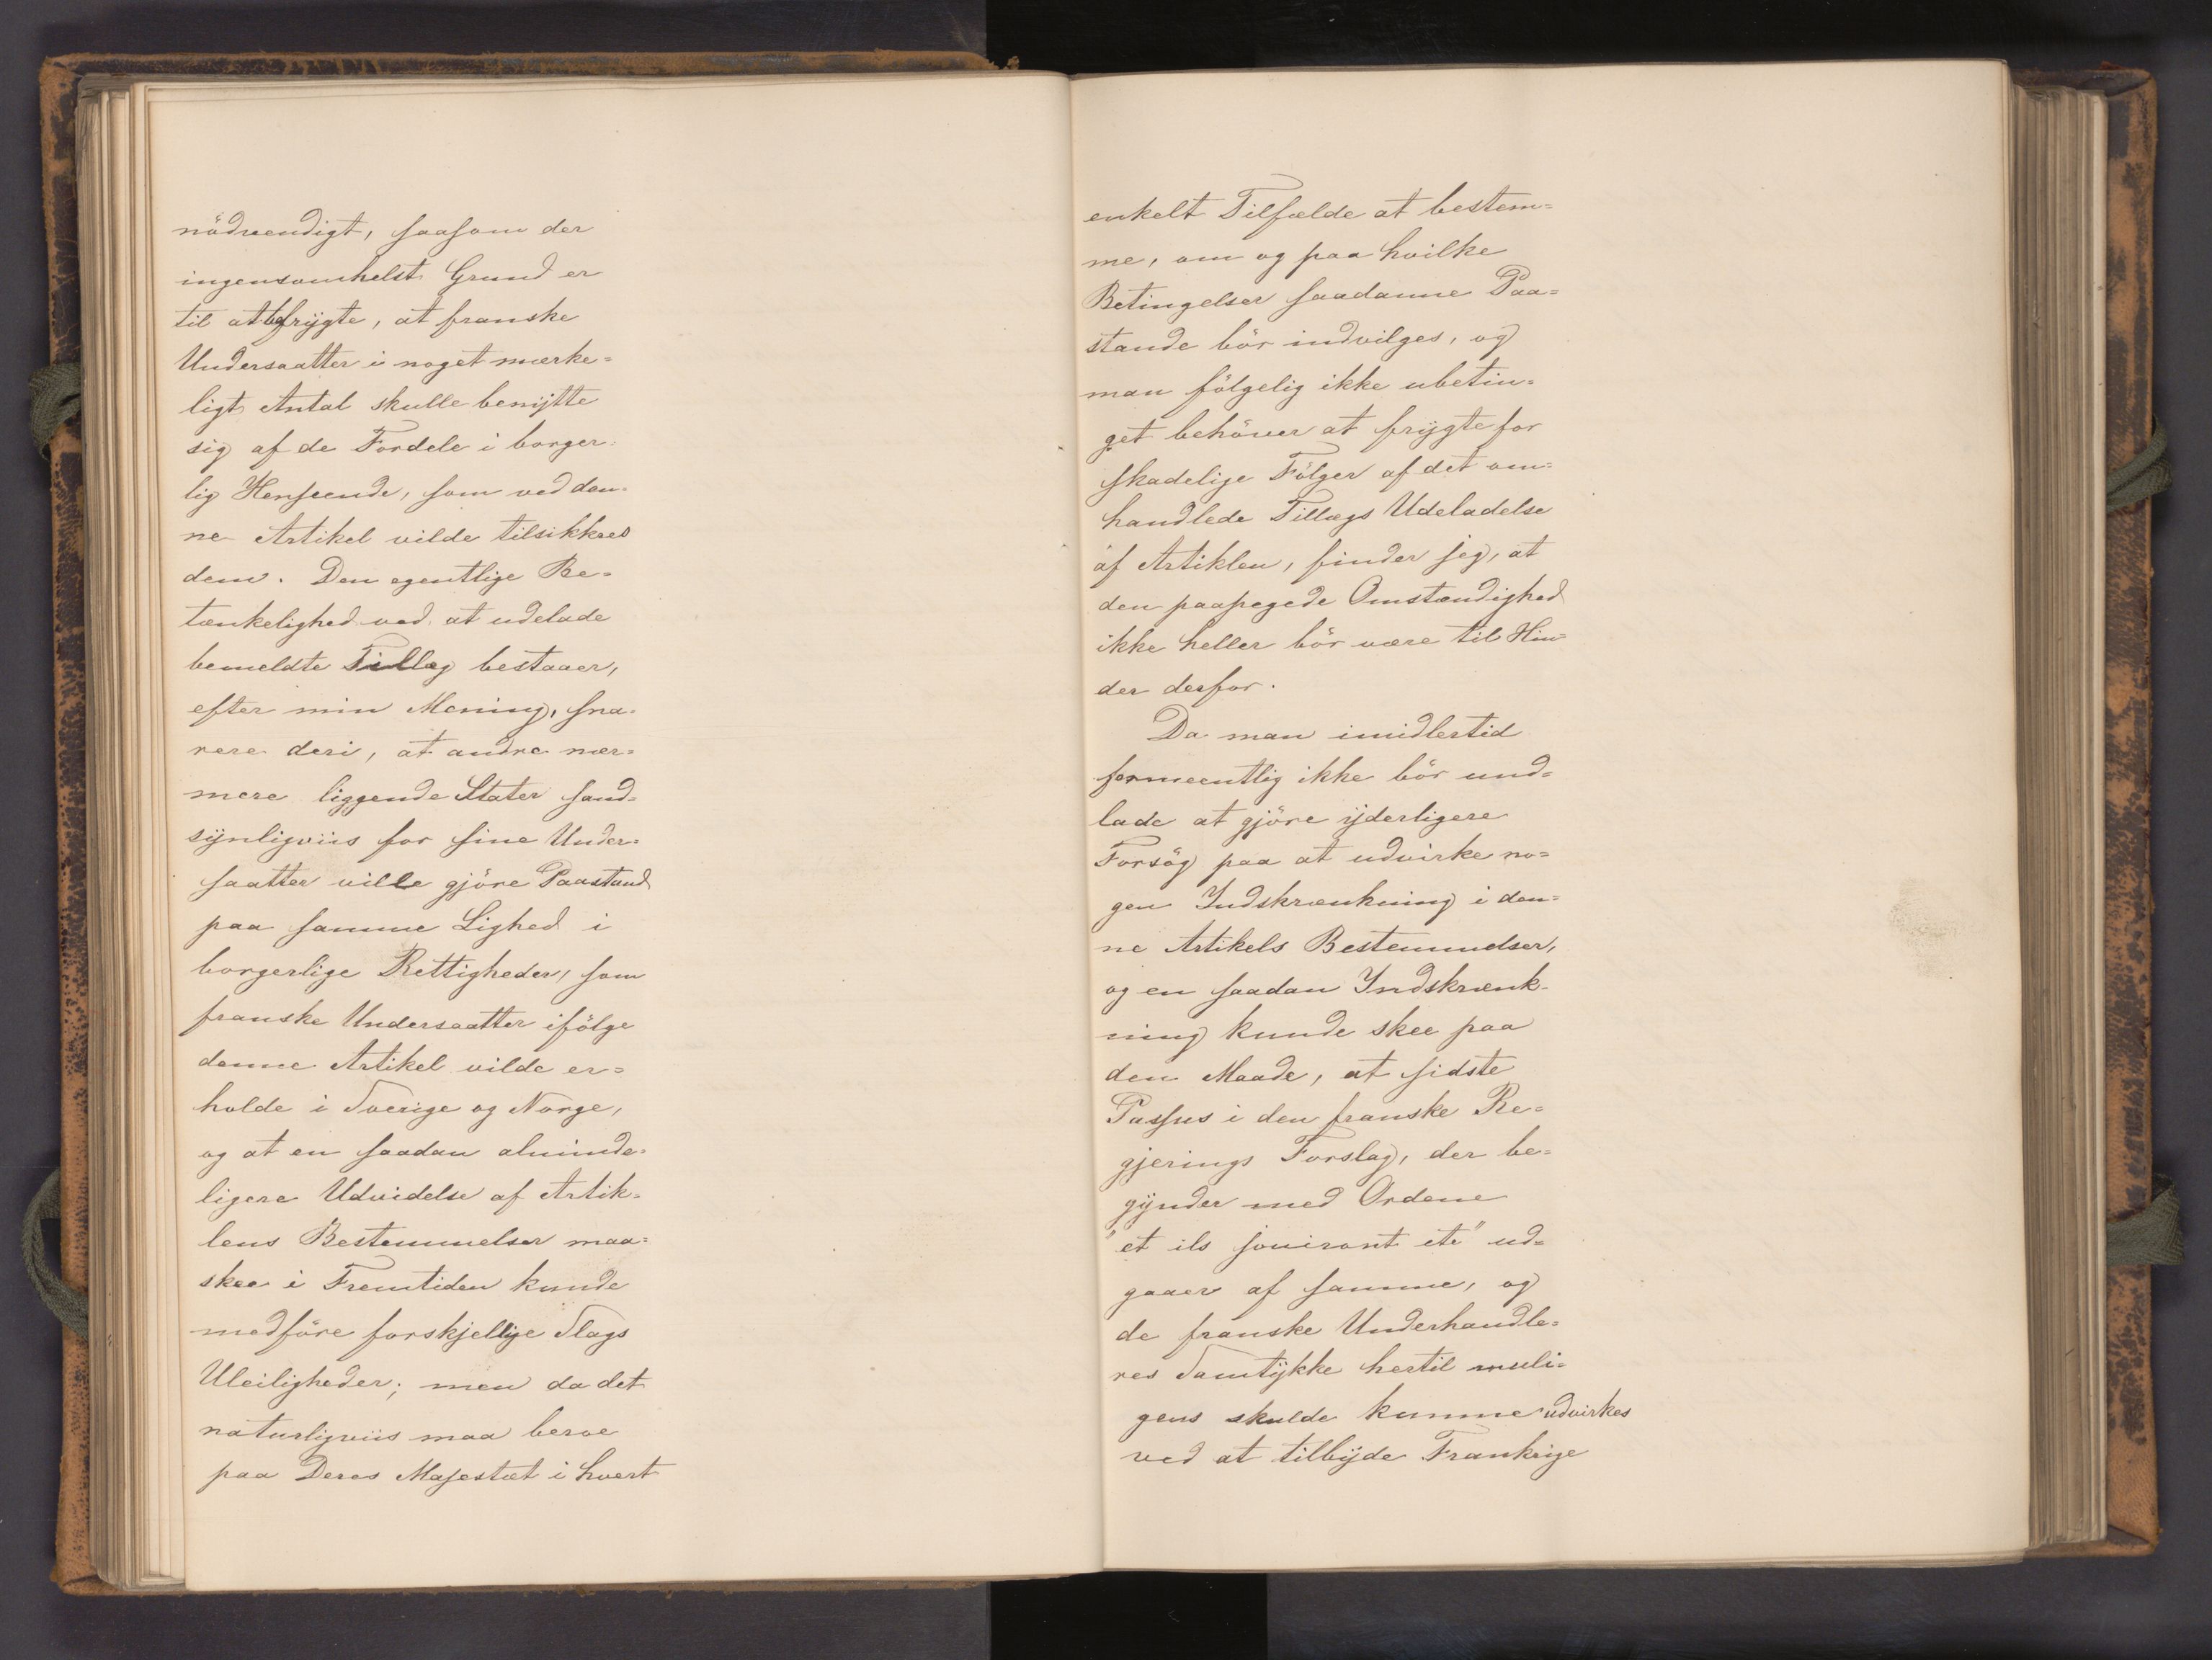 nödvendigt, saasom der
ingensomhelst Grund er
til at befrygte, at franske
Undersaatter i noget mærke=
ligt Antal skulle benytte
sig af de Fordele i borger=
lig Henseende, som ved den=
ne Artikel vilde tilsikkres
dem. Den egentlige Be=
tænkelighed ved at udelade
bemeldte Tillæg bestaaer,
efter min Mening, sna=
rere deri, at andre nær=
mere liggende Stater sand=
synligviis for sine Under=
saatter ville gjöre Paastand
paa samme Lighed i
borgerlige Rettigheder, som
franske Undersaatter ifölge
denne Artikel vilde er=
holde i Sverige og Norge,
og at en saadan alminde=
ligere Udvidelse af Artik=
lens Bestemmelser maa=
skee i Fremtiden kunde
medföre forskjellige Slags
Uleiligheder; men da det
naturligviis maa beroe
paa Deres Majestæt i hvert
enkelt Tilfælde at bestem=
me, om og paa hvilke
Betingelser saadanne Paa=
stande bör indvilges, og
man fölgelig ikke ubetin=
get behöver at frygte for
skadelige Fölger af det om=
handlede Tillægs Udeladelse
af Artiklen, finder jeg, at
den paapegede Omstændighed
ikke heller bör være til Hin=
der derfor.
Da man imidlertid
formeentlig ikke bör und=
lade at gjöre yderligere
Forsög paa at udvirke no=
gen Indskrænkning i den=
ne Artikels Bestemmelser,
og en saadan Indskrænk-
ning kunde skee paa
den Maade, at sidste
Passus i den franske Re=
gjerings Forslag, der be=
gynder med Ordene
"et ils jouiront etc" ud=
gaaer af samme, og
de franske Underhandle=
res Samtykke hertil muli=
gens skulde kunne udvirkes
ved at tilbyde Frankrige